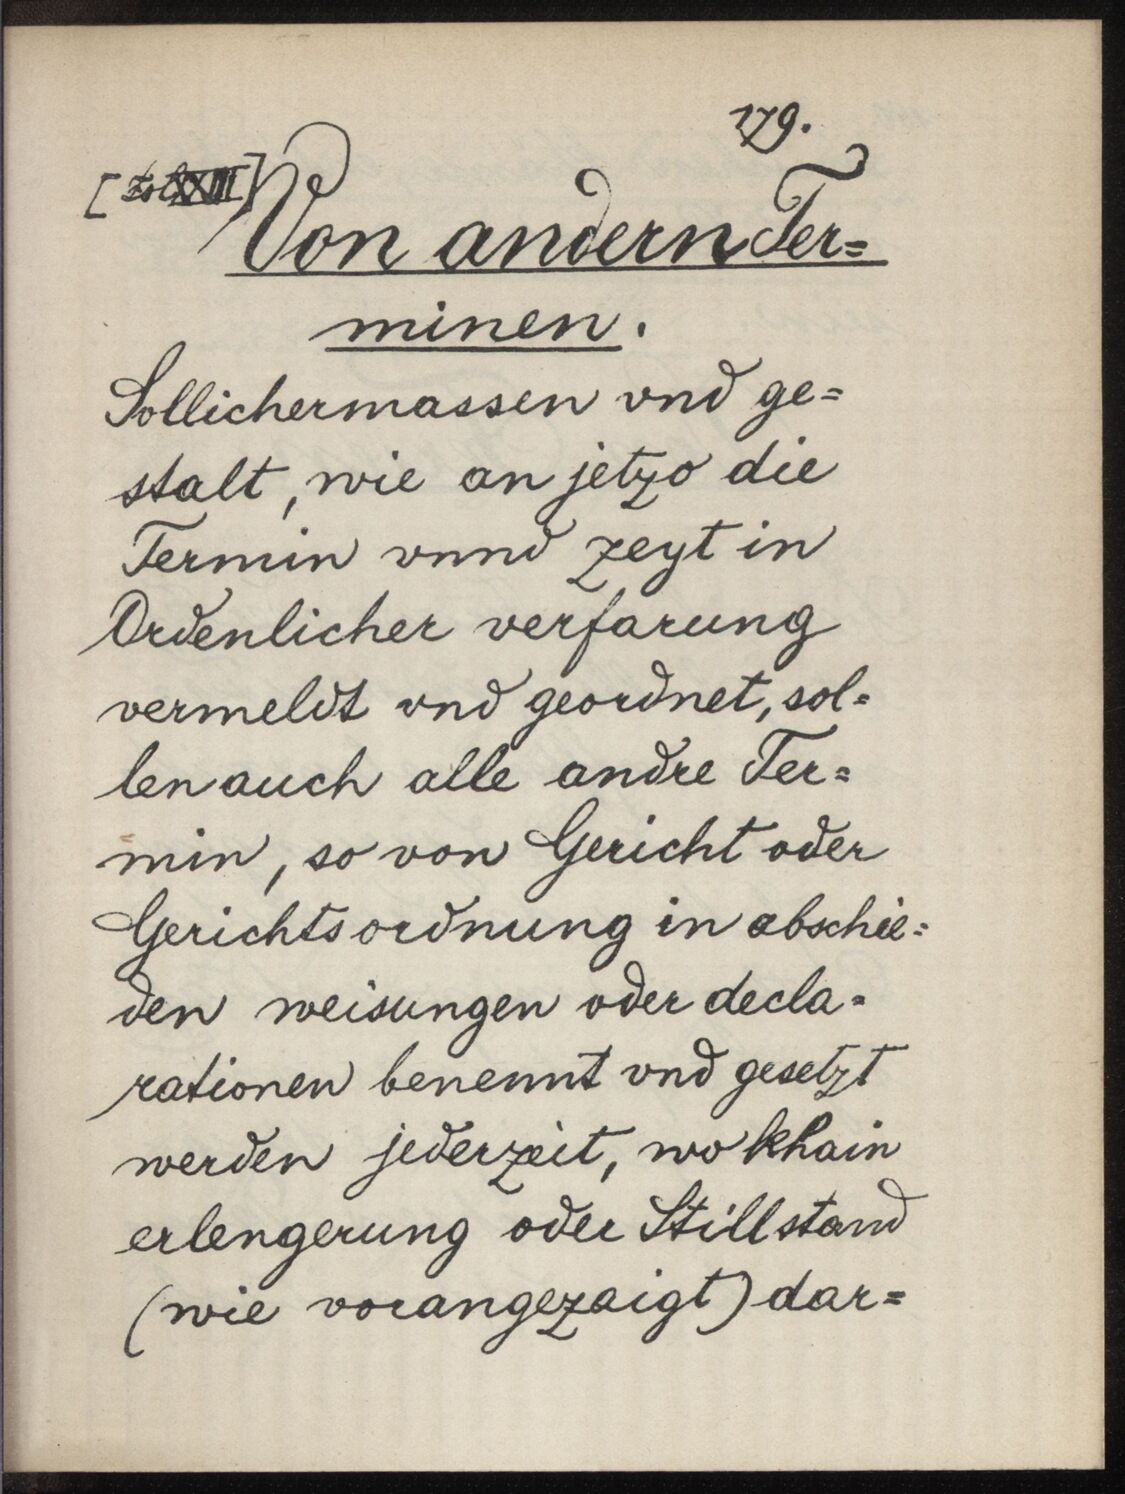 179.
[fol XXIII]
Von andern Ter=
minen.
Sollichermassen vnd ge=
stalt, wie an jetzo die
Termin vnnd zeyt in
Ordenlicher verfarung
vermeldt vnd geordnet, sol=
len auch alle andre Ter=
min, so von Gericht oder
Gerichtsordnung in abschie=
den weisungen oder decla=
rationen benennt vnd gesetzt
werden jederzeit, wo khain
erlengerung oder Stillstand
(wie vorangezaigt) dar=